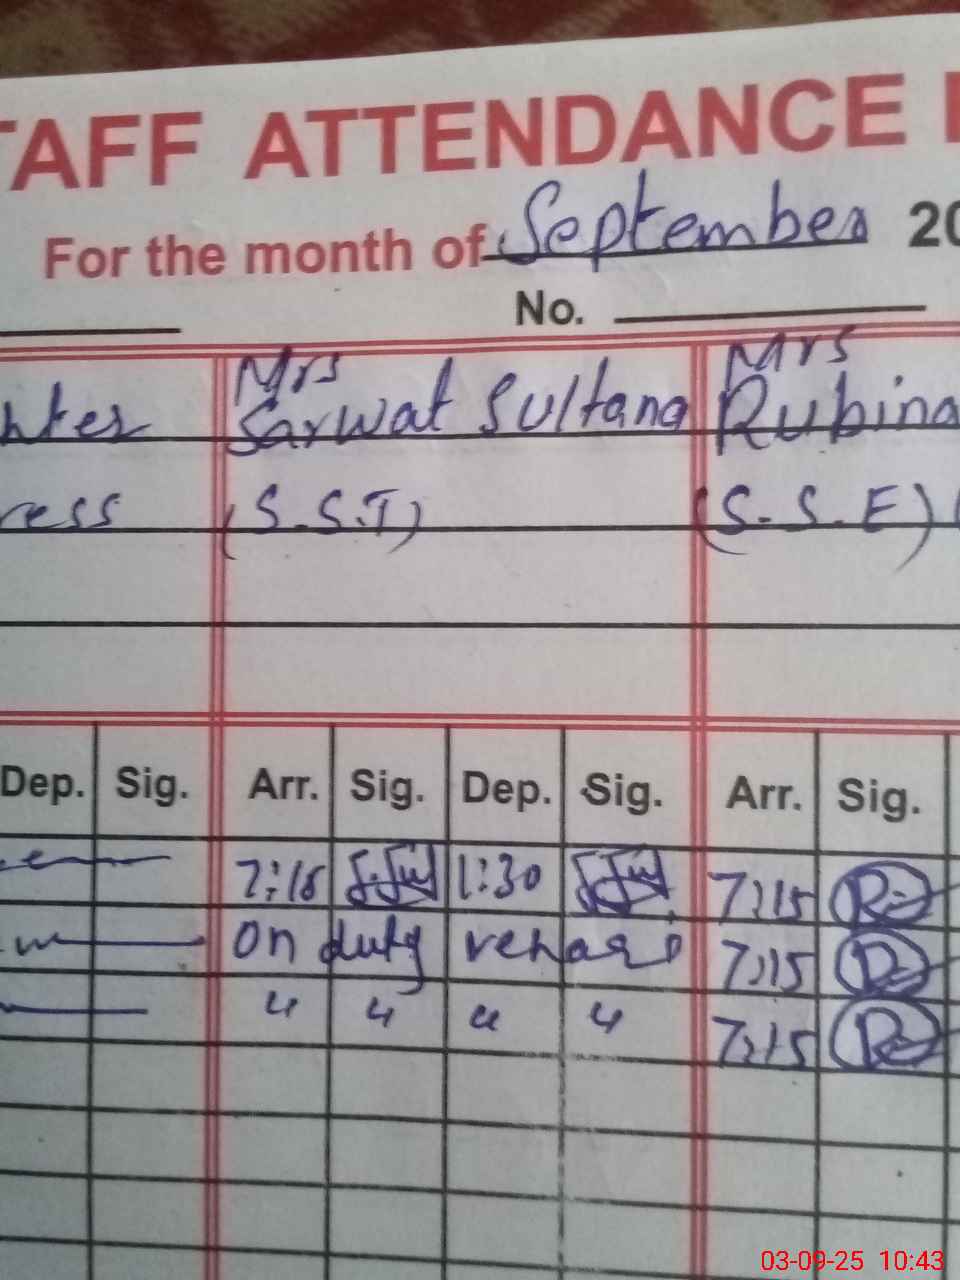 TAFF ATTENDANCE
For the month of September 20
No.
Mrs Mrs
Sarwat Sultana Rubina
ress (S.S.T) (S.S.E)
Dep. Sig. Arr. Sig. Dep. Sig. Arr. Sig.
7:15 1:30 7:15
on duty 7:15
" " " " 7:15
03-09-25 10:43